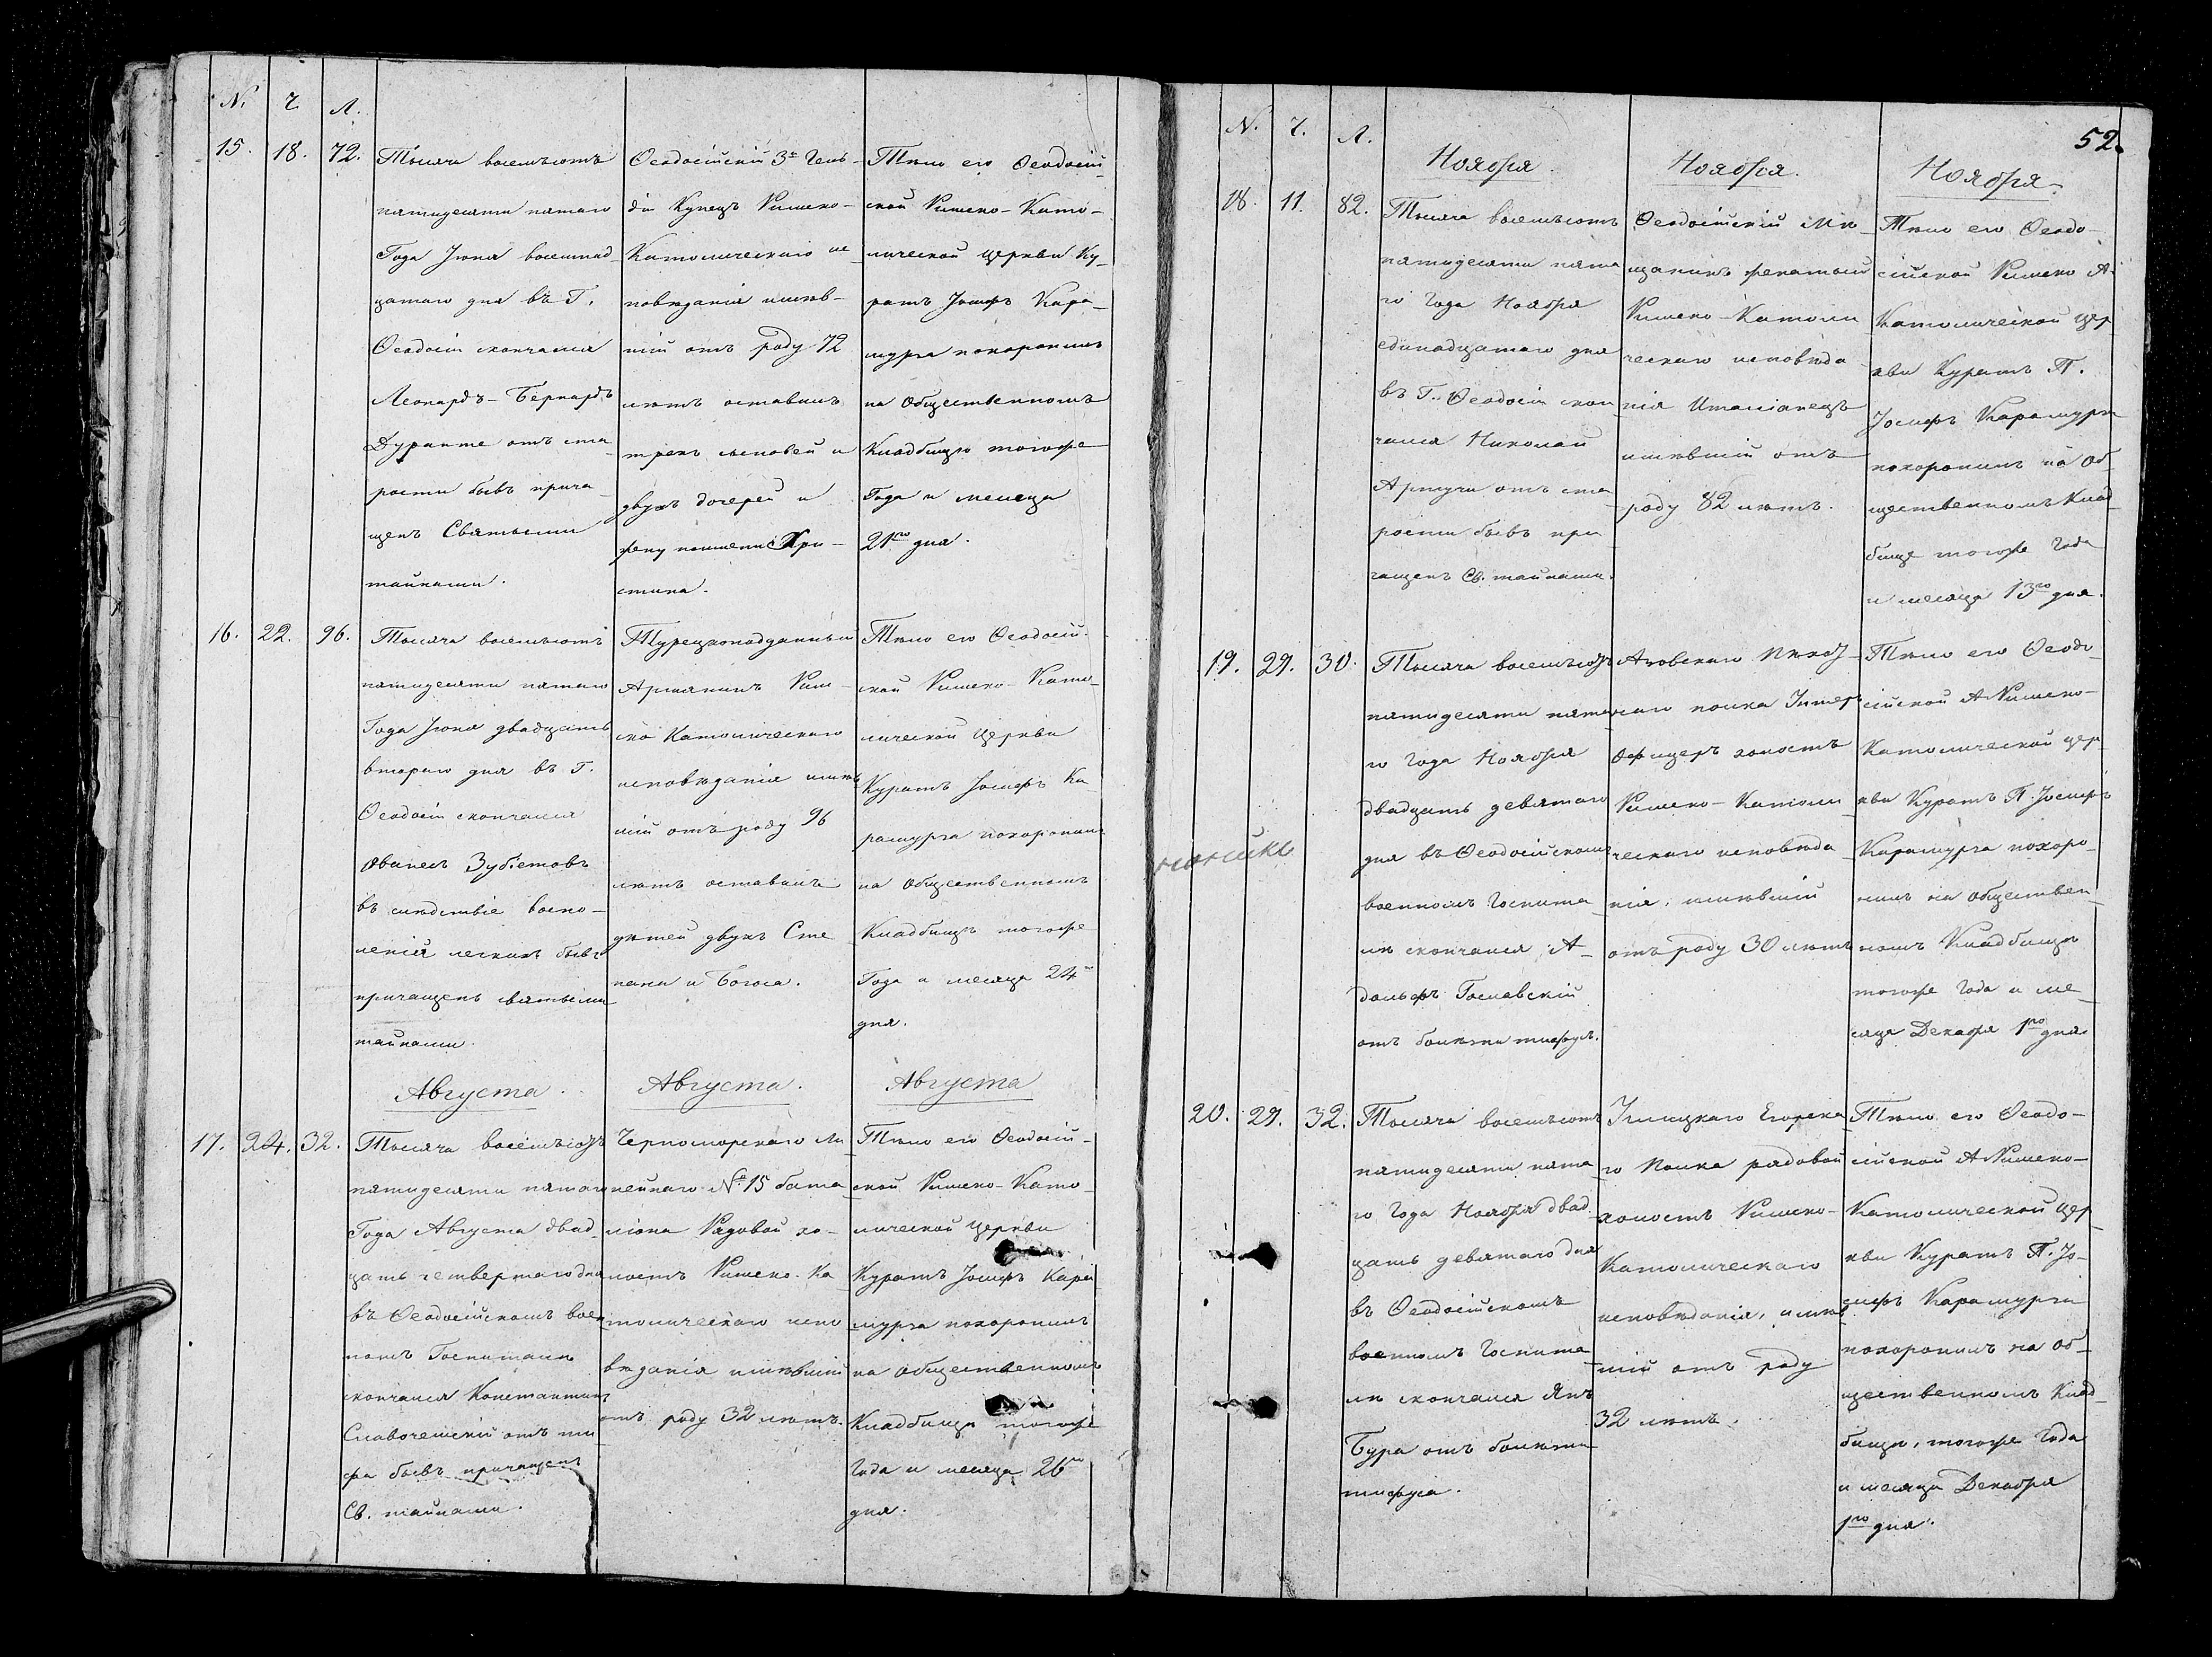 N. Ч. Л.
15. 18. 72.
Тысяча восемьсотъ
пятидесяти пятаго
Года Іюня восемнад-
цатаго дня въ Г.
Ѳеодосіи скончался
Леонардъ-Бернардъ
Дуранте отъ ста-
рости бывъ прича-
щенъ Святыми
тайнами.
Ѳеодосійскій 3й Гель-
діи Купецъ Римско-
Католическаго ис-
повѣданія имѣв-
шій отъ роду 72
лѣтъ оставилъ
трехъ сыновей и
двухъ дочерей и
жену Хри-
стина.
Тѣло его Ѳеодосій-
ской Римско-Като-
лической церкви Ку-
ратъ Іосифъ Кара-
мурза похоронилъ
на Общественномъ
Кладбищѣ тогоже
Года и месяца
21го дня.
16. 22. 96.
Тысяча восемьсотъ
пятидесяти пятаго
Года Іюня двадцать
втораго дня въ Г.
Ѳеодосіи скончался
Ованесъ Зубіетовъ
въ слѣдствіе воспо-
ленія легкихъ бывъ
причащенъ святыми
тайнами.
Турецкоподданный
Армянинъ Рим-
ско Католическаго
исповѣданія имѣв
шій отъ роду 96
лѣтъ оставилъ
дѣтей двухъ Сте
пана и Богоса.
Тѣло его Ѳеодосій-
ской Римско-Като-
лической Церкви
Куратъ Іосифъ Ка-
рамурза похоронилъ
на Общественномъ
Кладбищѣ тогоже
Года и месяца 24го
дня.
Августа. Августа. Августа
17. 24. 32.
Тысяча восемьсотъ
пятидесяти пятаго
Года Августа двад-
цать четвертаго дня
въ Ѳеодосійскомъ воен
номъ Госпиталѣ
скончался Константинъ
Славочешскій отъ ти-
фа бывъ причащенъ
Св. тайнами.
Черноморскаго Ли
нейнаго №15 бата
ліона Рядовой хо-
лостъ Римско-Ка
толическаго испо
вѣданія имѣвшій
отъ роду 32 лѣтъ.
Тѣло его Ѳеодосій-
ской Римско-Като-
лической Церкви
Куратъ Іосифъ Кара
мурза похоронилъ
на общественномъ
Кладбищѣ тогоже
Года и месяца 26го
дня.
52.
N. Ч. Л.
Ноября. Ноября. Ноября.
18. 11. 82.
Тысяча восемьсотъ
пятидесяти пята
го Года Ноября
единадцатаго дня
въ Г. Ѳеодосіи скон
чался Николай
отъ ста
рости бывъ при
чащенъ Св. тайнами.
Ѳеодосійскій Мѣ-
щанинъ женатый
Римско-Католи
ческаго исповѣда
нія Италіанецъ
имѣвшій отъ
роду 82 лѣтъ.
Тѣло его Ѳеодо-
сійской Римско А
Католической Цер
кви Куратъ П.
Іосифъ Карамурза
похоронилъ на Об-
щественномъ Клад
бище тогоже Года
и месяца 13го дня.
19. 29. 30.
Тысяча восемьсотъ
пятидесяти пята
го Года Ноября
двадцать девятаго
дня въ Ѳеодосійскомъ
военномъ Госпита-
лѣ скончался А-
дольфъ Гославскій
отъ болѣзни тифусъ.
Азовскаго пѣхот-
наго полка Унтеръ
Офицеръ холостъ
Римско-Католи
ческаго исповѣда
нія, имѣвшій
отъ роду 30 лѣтъ
Тѣло его Ѳеодо-
сійской А Римско-
Католической цер-
кви Куратъ П. Іосифъ
Карамурза похоро-
нилъ на обществен-
номъ Кладбищѣ
тогоже Года и ме-
сяца Декабря 1го дня.
20. 29. 32.
Тысяча восемьсотъ
пятидесяти пята
го Года Ноября двад-
цать девятаго дня
въ Ѳеодосійскомъ
военномъ Госпита-
лѣ скончался Янъ
Бура отъ болѣзни
тифуса.
Углицкаго Егерска
го Полка рядовой
холостъ Римско-
Католическаго
исповѣданія, имѣв
шій отъ роду
32 лѣтъ.
Тѣло его Ѳеодо-
сійской А Римско-
Католической Цер-
кви Куратъ П. Іо-
сифъ Карамурза
похоронилъ на об-
щественномъ Клад-
бищѣ, тогоже Года
и месяца Декабря
1го дня.